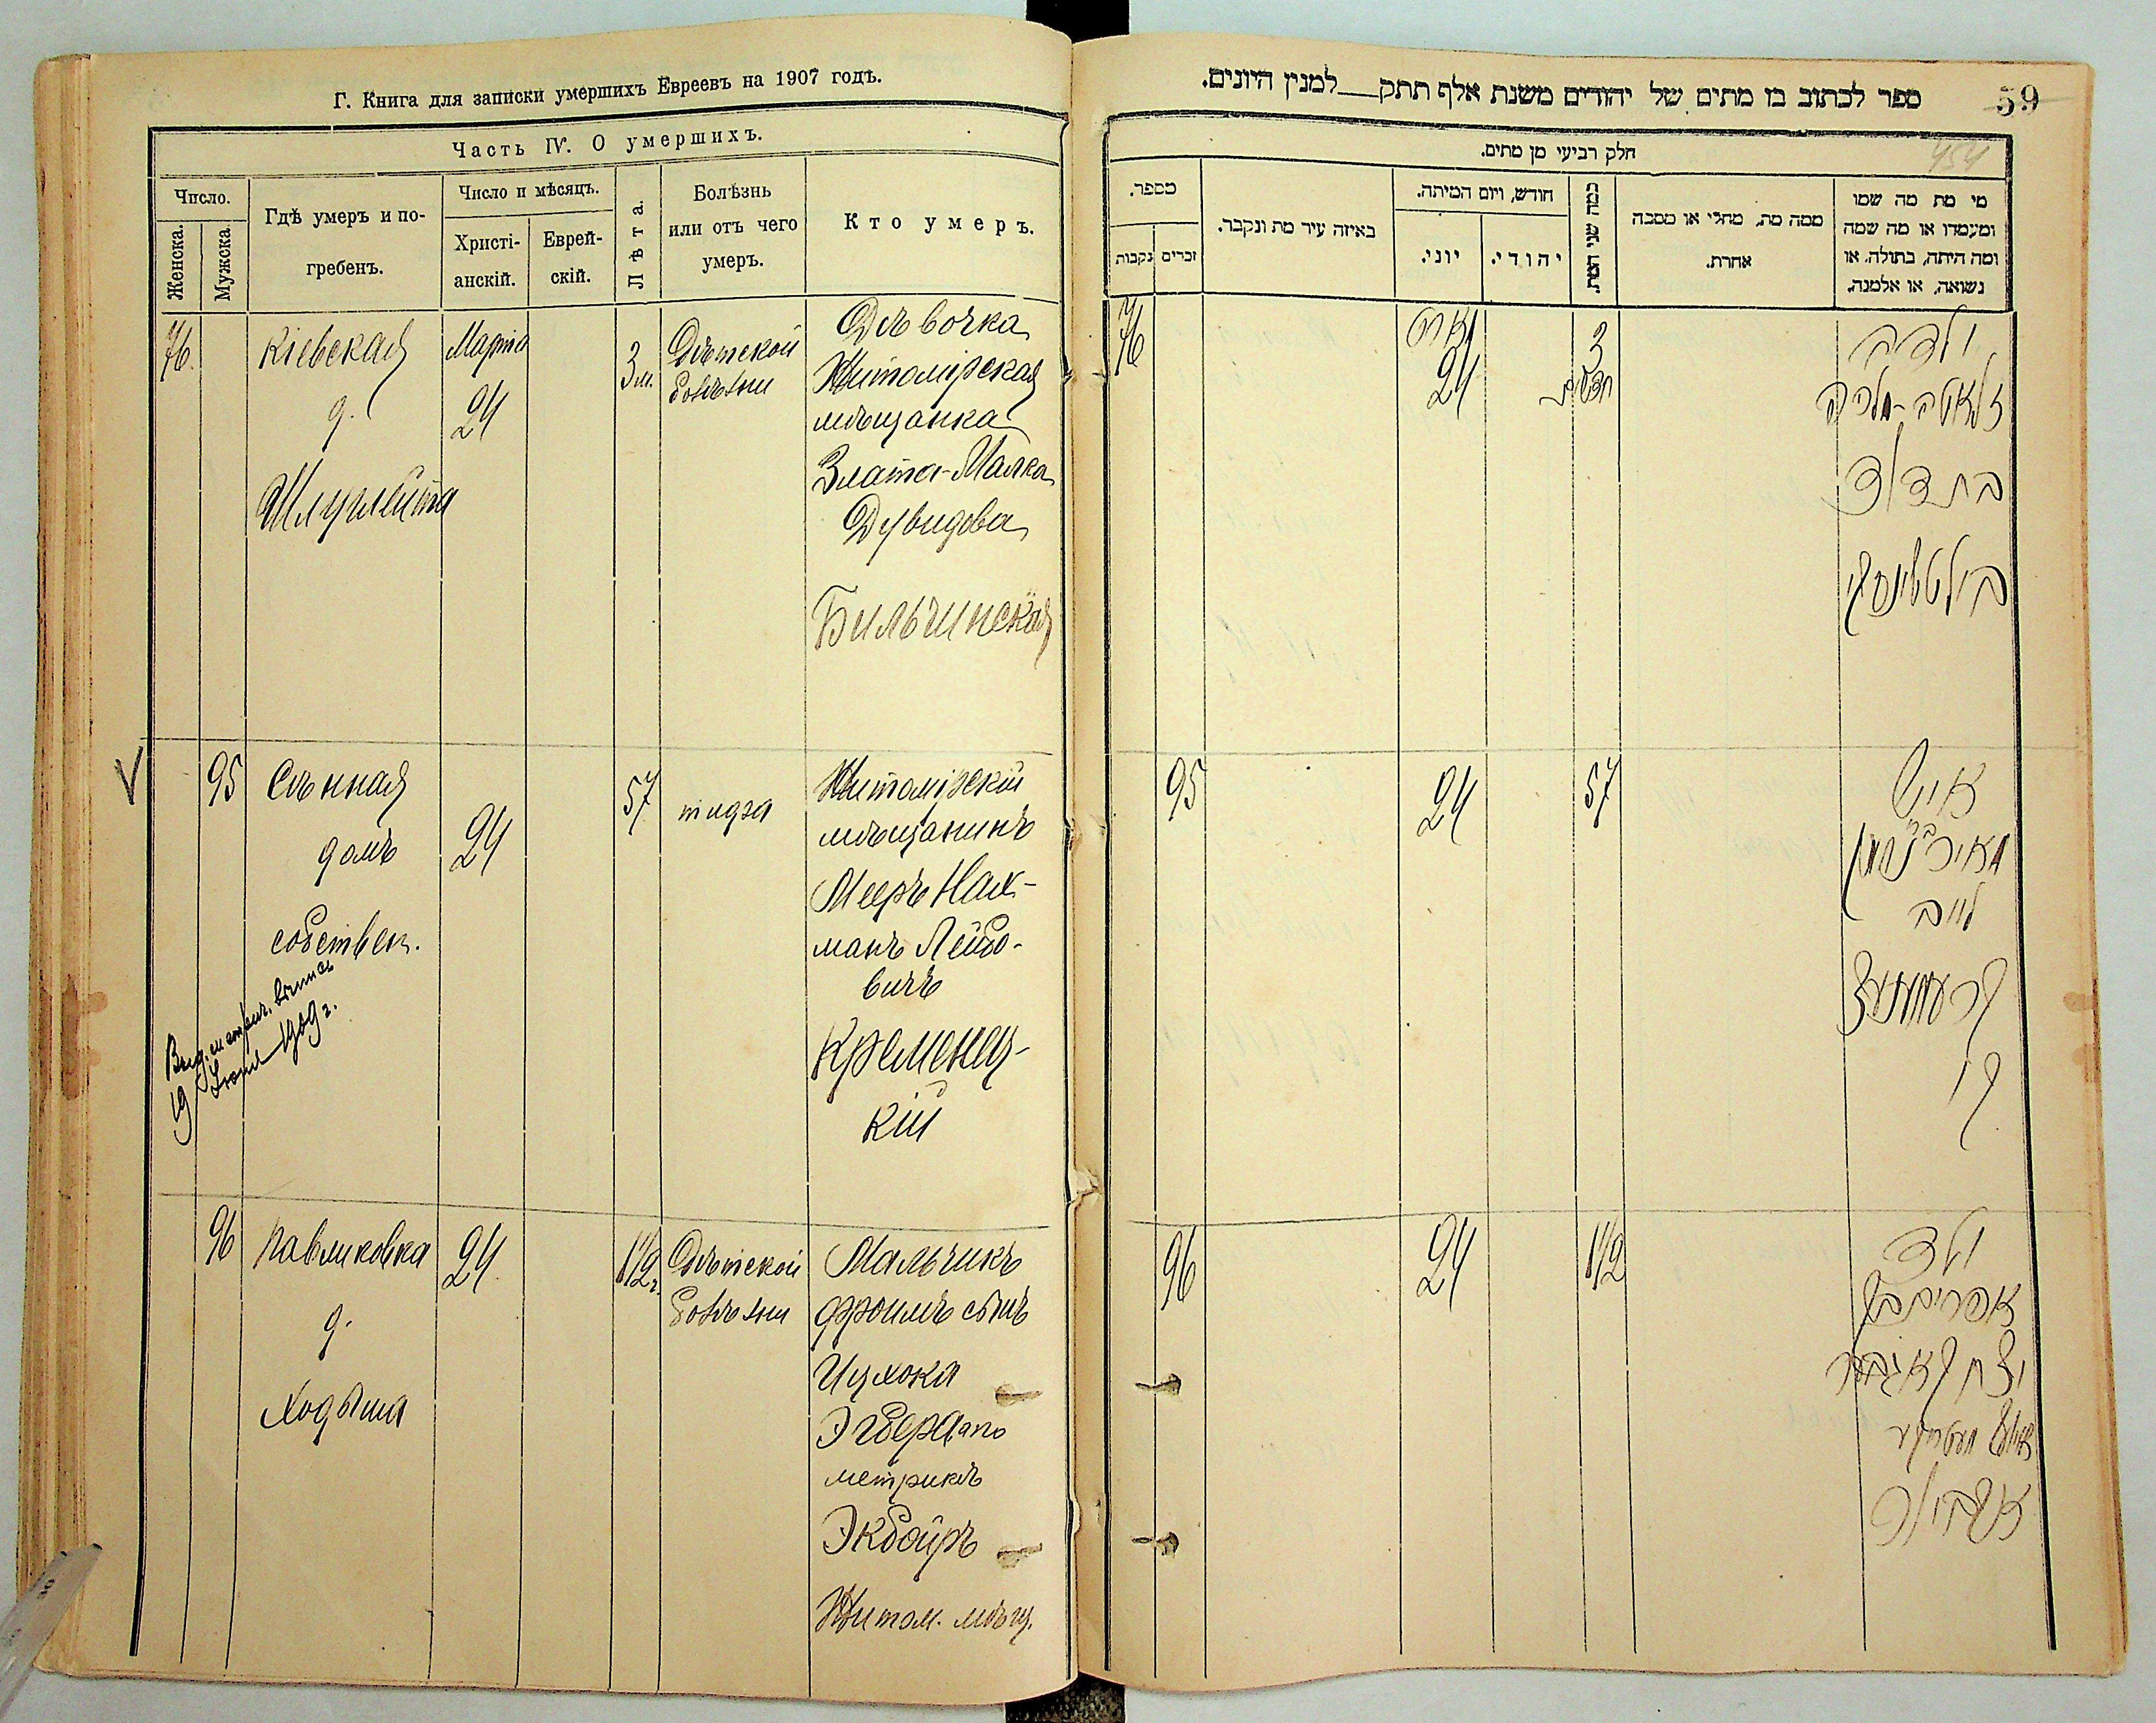 Г. Книга для записки умершихъ Евреевъ на 1907 годъ.
Часть IV. О умершихъ.
Число.
Женска.
Мужска.
Гдѣ умеръ и по-
гребенъ.
Число и мѣсяцъ.
Христі-
анскій.
Еврей-
скій.
Лѣта.
Болѣзнь
или отъ чего
умеръ.
Кто умеръ.
76.
Кіевская
д.
Марта
24
3 м.
Дѣтской
болѣзни
Дѣвочка
Житомірская
мѣщанка
Злата-Малка
Дувидова
Бильчинская
95
Сѣнная
домъ
собствен.
24
57
Житомірскій
мѣщанинъ
Мееръ Нах-
манъ Лейбо-
вичъ
Кременец-
кій
19 Іюня 1909 г.
96
Павликовка
д.
Ходыша
24
1 1/2 г.
Дѣтской
болѣзни
Мальчикъ
Фроимъ сынъ
Ицхока
Экбера по
метрикѣ
Экбойръ
Житом. мѣщ.
59
454
ספר לכתוב בו מתים של יהודים משנת אלף תתק למנין היונים.
חלק רביעי מן מתים.
מספר.
נקבות
זכרים
באיזה עיר מת ונקבר.
חודש, ויום המיתה.
יוני.
יהודי.
כמה שני המת.
ממה מת, מחלי או מסבה
אחרת.
מי מת מה שמו
ומעמדו או מה שמה
ומה היתה, בתולה, או
נשואה, או אלמנה.
76
מארט
24
3
חדשים
ילדה
זלאטה-מלכה
בת דוד
בילטשינסקי
95
24
57
איש
מאיר נחמן
לייב
קרעמענעצ
קי
96
24
1 1/2
ילד
אפרים ב"ר